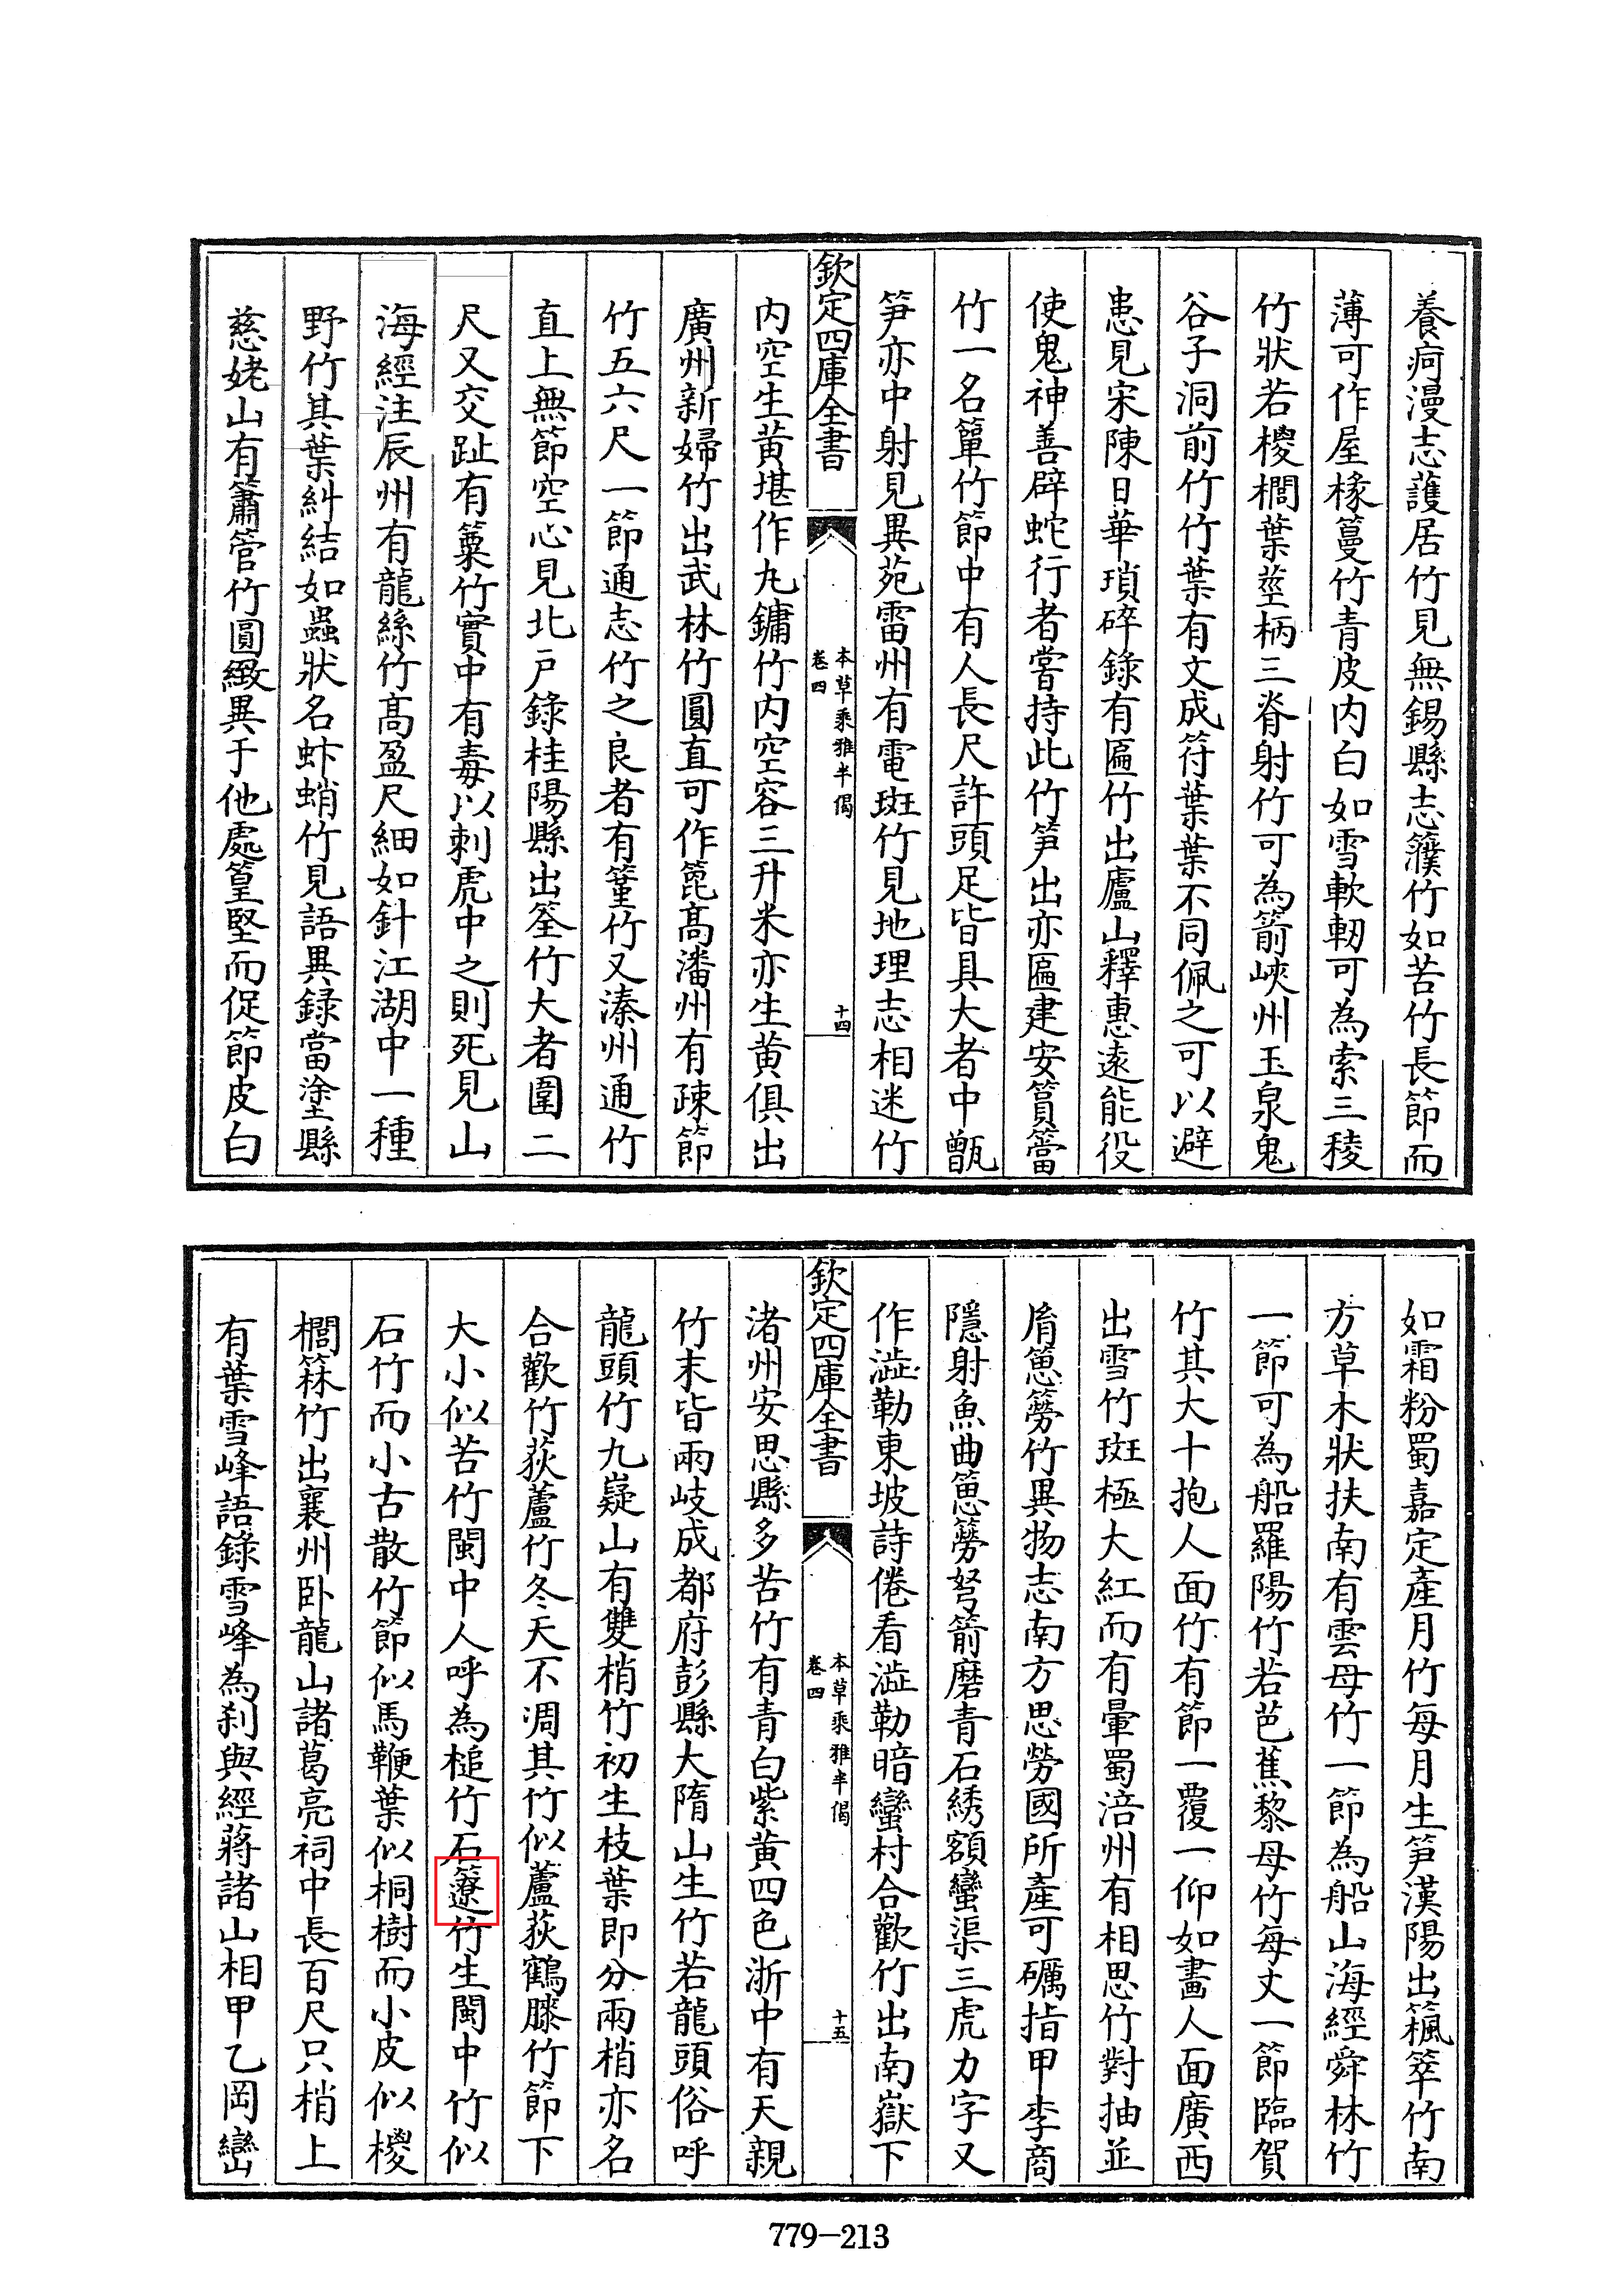 養疴漫志䕶居竹見無錫縣志籆竹如苦竹長節而
薄可作屋椽簍竹青皮内白如雪軟韌可為索三稜
竹狀若椶櫚葉莖柄三脊射竹可為箭峽州玉泉鬼
谷子洞前竹竹葉有文成符葉葉不同佩之可以避
患見宋陳日華瑣碎錄有匾竹出廬山釋惠逺能役
使鬼神善辟蛇行者嘗持此竹笋出亦匾建安篔簹
竹一名簞竹節中有人長尺許頭足皆具大者中甑
笋亦中射見異苑雷州有電斑竹見地理志相迷竹
欽定四庫全書
本草乘雅半偈
卷四
十四
内空生黄堪作丸鏞竹内空容三升米亦生黄俱出
廣州新婦竹出武林竹圓直可作箆髙潘州有疎節
竹五六尺一節通志竹之良者有篁竹又溱州通竹
直上無節空心見北户錄桂陽縣出筌竹大者圍二
尺又交趾有䉤竹實中有毒以刺虎中之則死見山
海經注辰州有龍絲竹髙盈尺細如針江湖中一種
野竹其葉糾結如蟲狀名蚱蛸竹見語異録當塗縣
慈姥山有簫管竹圓緻異于他處篁堅而促節皮白
如霜粉蜀嘉定產月竹每月生笋漢陽出篻箤竹南
方草木狀扶南有雲母竹一節為船山海經舜林竹
一節可為船羅陽竹若芭蕉黎母竹每丈一節臨賀
竹其大十抱人面竹有節一覆一仰如畵人面廣西
出雪竹斑極大紅而有暈蜀涪州有相思竹對抽並
𦙍箽簩竹異物志南方思勞國所產可礪指甲李商
隱射魚曲箽簩弩箭磨青石綉額蠻渠三虎力字又
作澁勒東坡詩倦看澁勒暗蠻村合歡竹出南嶽下
欽定四庫全書
本草乘雅半偈
卷四
十五
渚州安思縣多苦竹有青白紫黄四色浙中有天親
竹末皆兩岐成都府彭縣大隋山生竹若龍頭俗呼
龍頭竹九嶷山有雙梢竹初生枝葉即分兩梢亦名
合歡竹荻蘆竹冬天不凋其竹似蘆荻鶴膝竹節下
大小似苦竹閩中人呼為槌竹石簝竹生閩中竹似
石竹而小古散竹節似馬鞭葉似桐樹而小皮似椶
櫚箖竹出襄州卧龍山諸葛亮祠中長百尺只梢上
有葉雪峰語錄雪峰為刹與經蔣諸山相甲乙岡巒
779-213